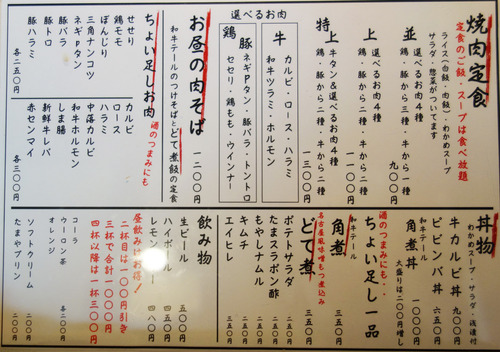 焼肉定食
定食のご飯・スープは食べ放題
ライス(白飯・肉飯)・わかめスープ
サラダ・惣菜がついてます
並 選べるお肉4種
鶏、豚から二種・牛から二種 九〇〇円
上 選べるお肉4種
鶏・豚から二種・牛から二種 一一〇〇円
特上 牛タン&選べるお肉4種
鶏・豚から二種・牛から二種 一三〇〇円
選べるお肉
牛
カルビ・ロース・ハラミ
和牛ツラミ・ホルモン
豚 ネギPタン・豚バラ・トントロ
鶏 セセリ・鶏もも・ウインナー
お昼の肉そば 一二〇〇円
和牛テールのつけそばとどて煮飯の定食
ちょい足しお肉 酒のつまみにも
せせり
鶏モモ
ぼんじり
三角ナンコツ
ネギPタン
豚バラ
豚トロ
豚ハラミ
各二五〇円
カルビ
ロース
ハラミ
中落カルビ
和牛ホルモン
しま腸
新鮮牛レバ
赤センマイ
各三〇〇円
丼物
わかめスープ・サラダ・浅漬付
牛カルビ丼 九五〇円
ビビンバ丼 六五〇円
角煮丼 一〇〇〇円
和牛テール
大盛りは二〇〇円増し
ちょい足し一品
酒のつまみにも・・
角煮 三五〇円
和牛テール
どて煮 三五〇円
名古屋風味噌もつ煮込み
ポテトサラダ 三五〇円
たまスラポン酢 三五〇円
もやしナムル 三五〇円
キムチ 三五〇円
エイヒレ 三五〇円
飲み物
生ビール 五〇〇円
ハイボール 四五〇円
レモン 四八〇円
昼飲みにお得!
二杯目は一〇〇円引き
三杯で合計一〇〇〇円
四杯以降は一杯三〇〇円
コーラ
ウーロン茶
オレンジ
各二〇〇円
ソフトクリーム 二〇〇円
たまやプリン 二〇〇円